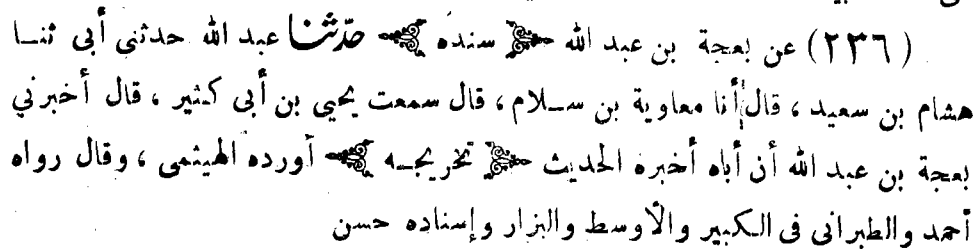 (٢٣٦) عن بعجة بن عبد الله سنده حدثنا عبد الله حدثنى أبى ثنا
هشام بن سعيد ، قال أنا معاوية بن سلام ، قال سمعت يحيى بن أبى كثير ، قال أخبرني
بعجة بن عبد الله أن أباه أخبره الحديث تخريجه أورده الهيثمى ، وقال رواه
أحمد والطبرانى فى الكبير والأوسط والبزار وإسناده حسن